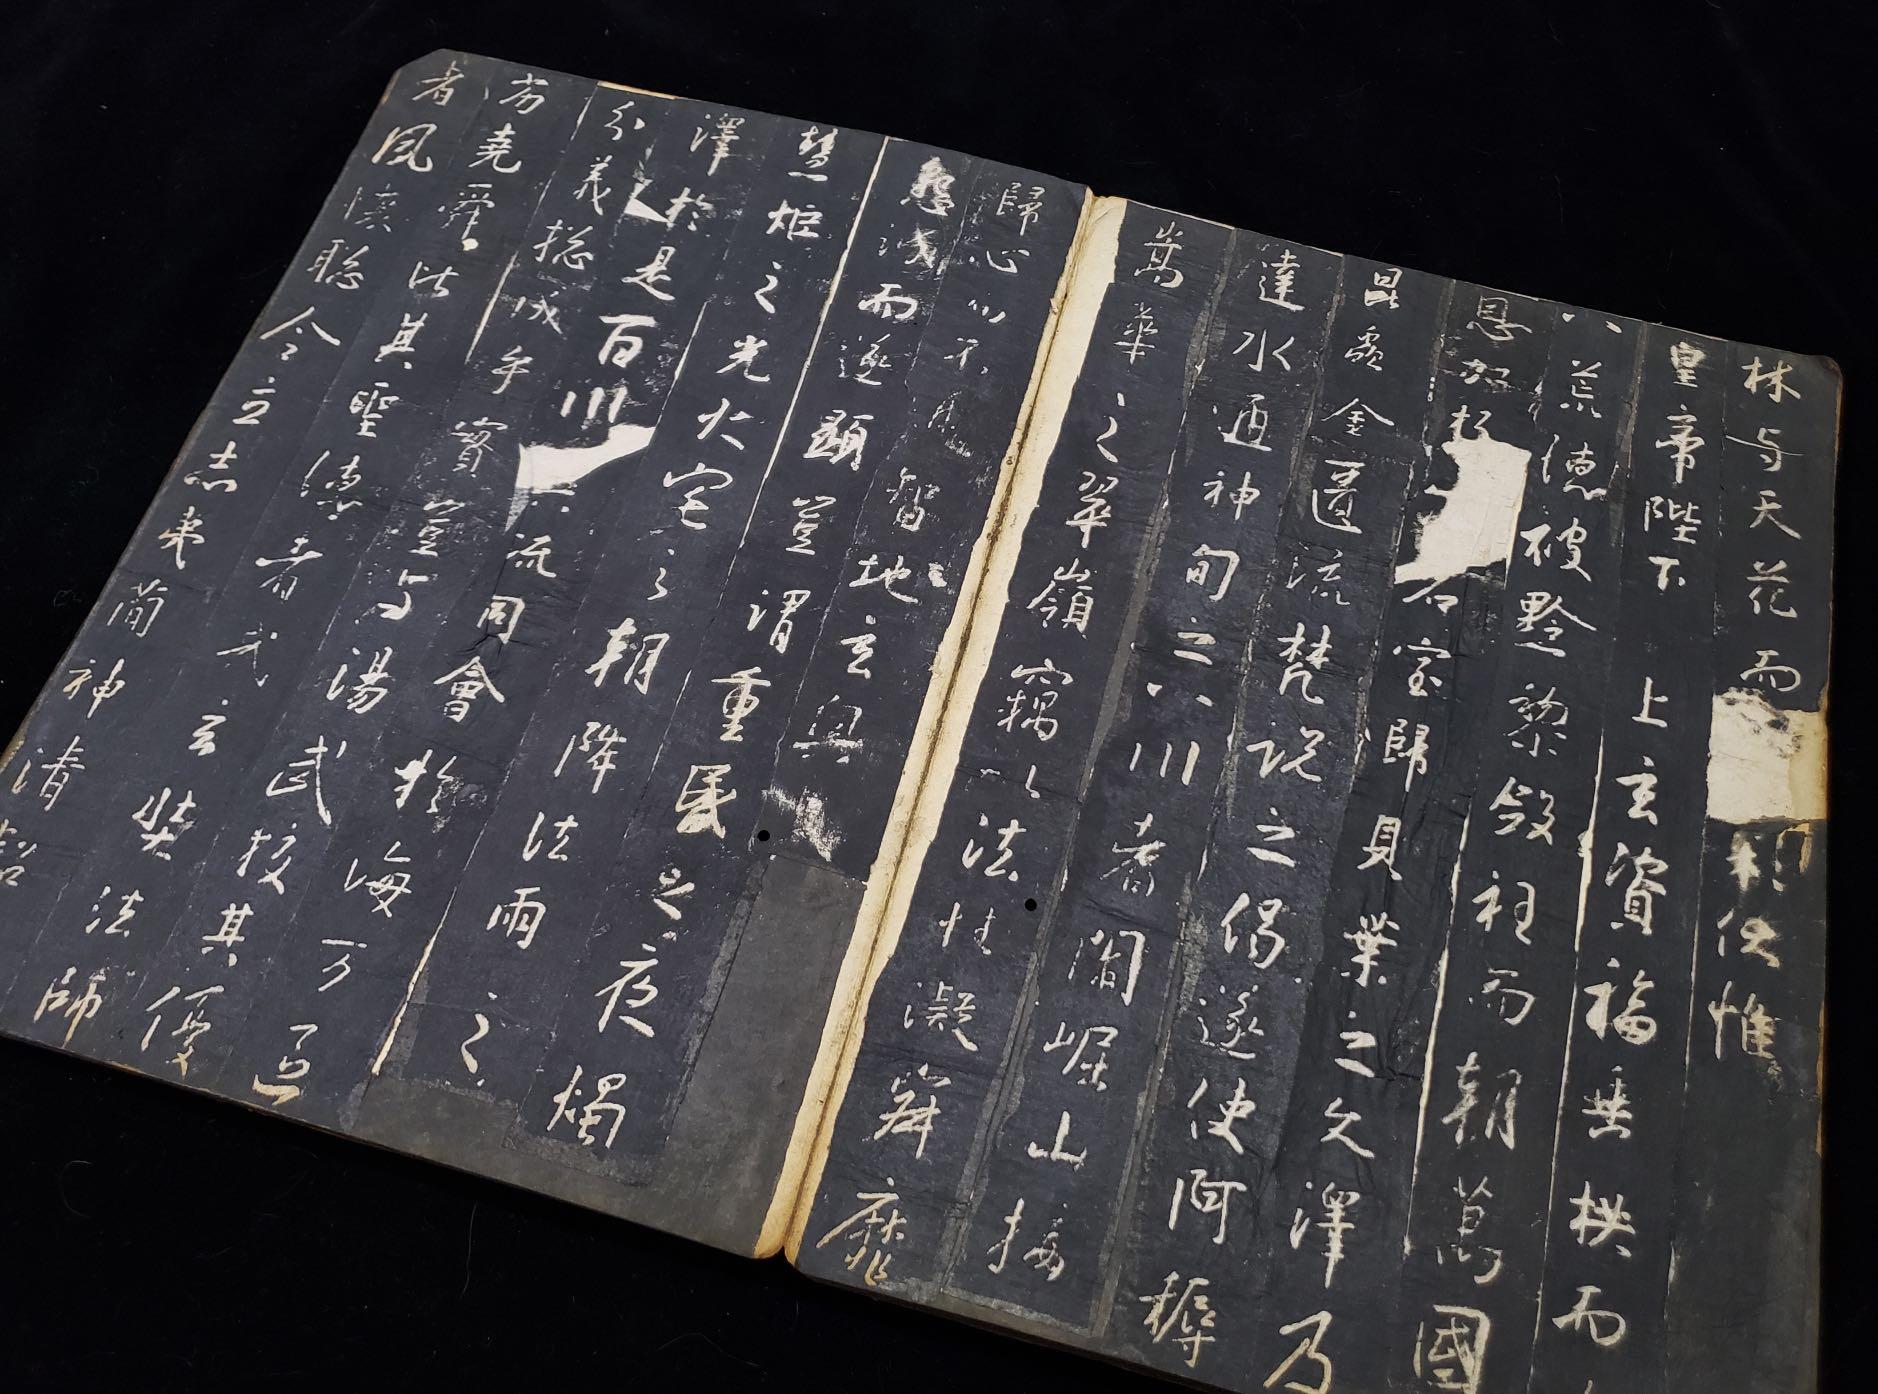 林与天花而彩伏惟
皇帝陛下 上玄資福垂拱而
八荒德被黔黎斂衽而朝萬國
恩加朽石室歸貝葉之文澤乃
昆蟲金匱流梵說之偈遂使阿耨
達水通神甸之八川耆闍崛山接
嵩華之翠嶺竊以法性凝寂靡
歸心以不通智地玄奧
懇誠而遂顯豈謂重昏之夜燭
慧炬之光火宅之朝降法雨之
澤於是百川流同會於海万區
分義揔成乎實豈与湯武校其優
劣堯舜比其聖德者哉玄奘法師
者夙懷聰令立志夷簡神清